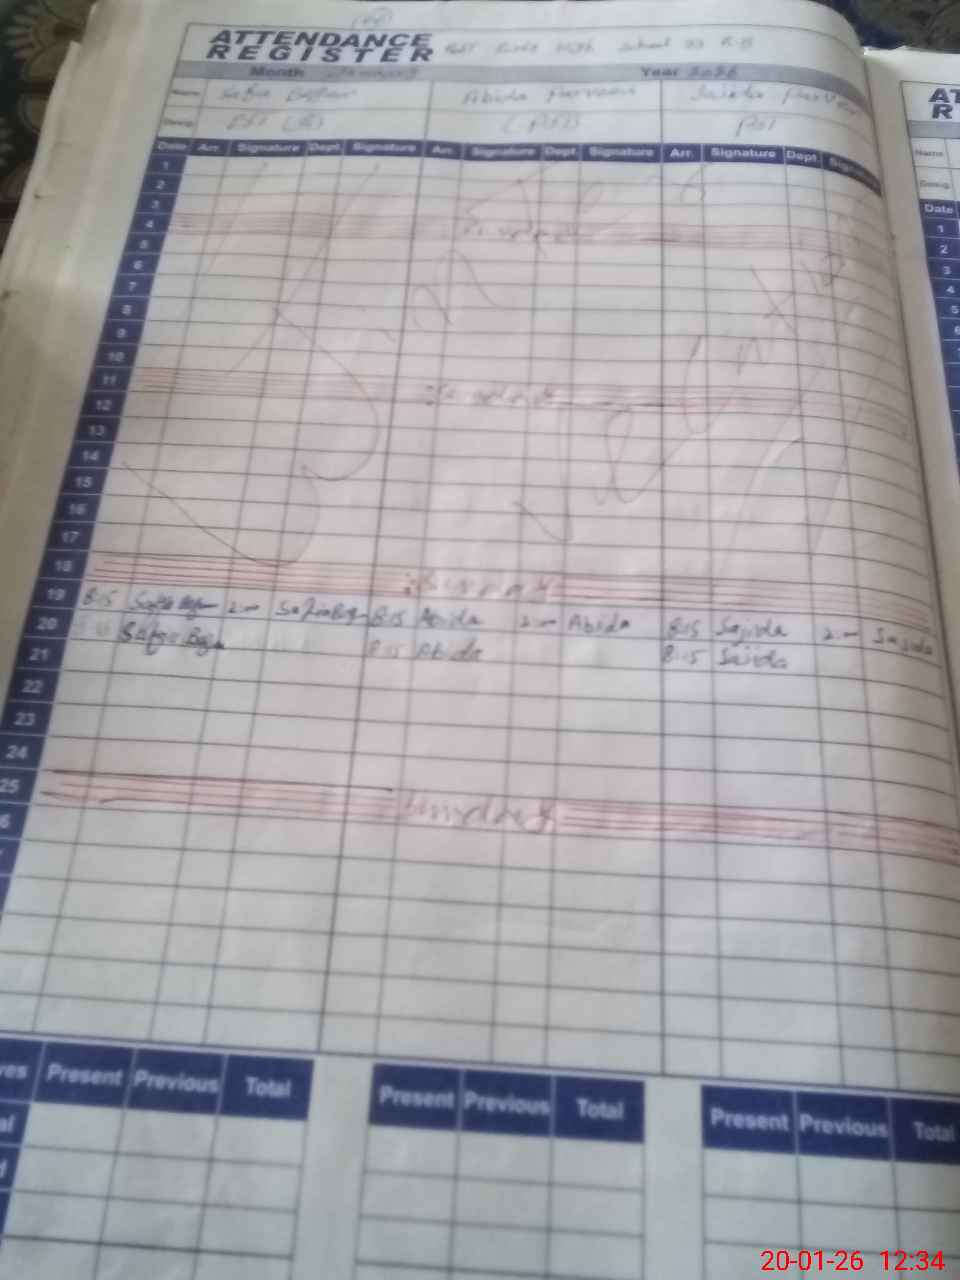 ATTENDANCE
REGISTER
School
Month January Year 2026
Name Safia Begum Abida Parveen Sajida Parveen
Desig PST
Date Arr. Signature Dept. Signature Arr. Signature Dept. Signature Arr. Signature Dept. Signature
1
2
3
4 Sunday
5
6
7
8
9
10
11 Sunday
12
13
14
15
16
17
18 Sunday
Winter
Vacation
19 8:15 Safia Begum 2:00 Safia Begum 8:15 Abida 2:00 Abida 8:15 Sajida 2:00 Sajida
20 Safia Begum 8:15 Abida 8:15 Sajida
21
22
23
24
25 Sunday
6
ves Present Previous Total Present Previous Total Present Previous Total
al
d
AT
R
Name
Desig
Date
1
2
3
4
5
6
20-01-26 12:34